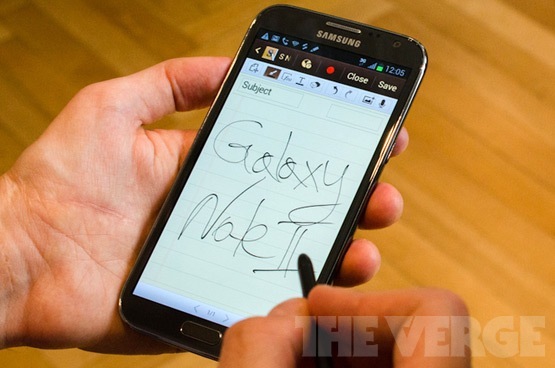 SAMSUNG
12:05
S N
Close
Save
Subject
Galaxy
Note II
1/1
THE VERGE